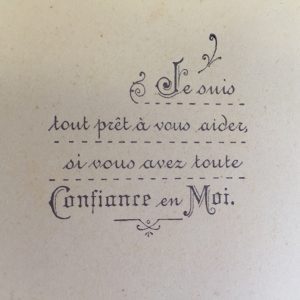 Je suis
tout prêt à vous aider,
si vous avez toute
Confiance en Moi.